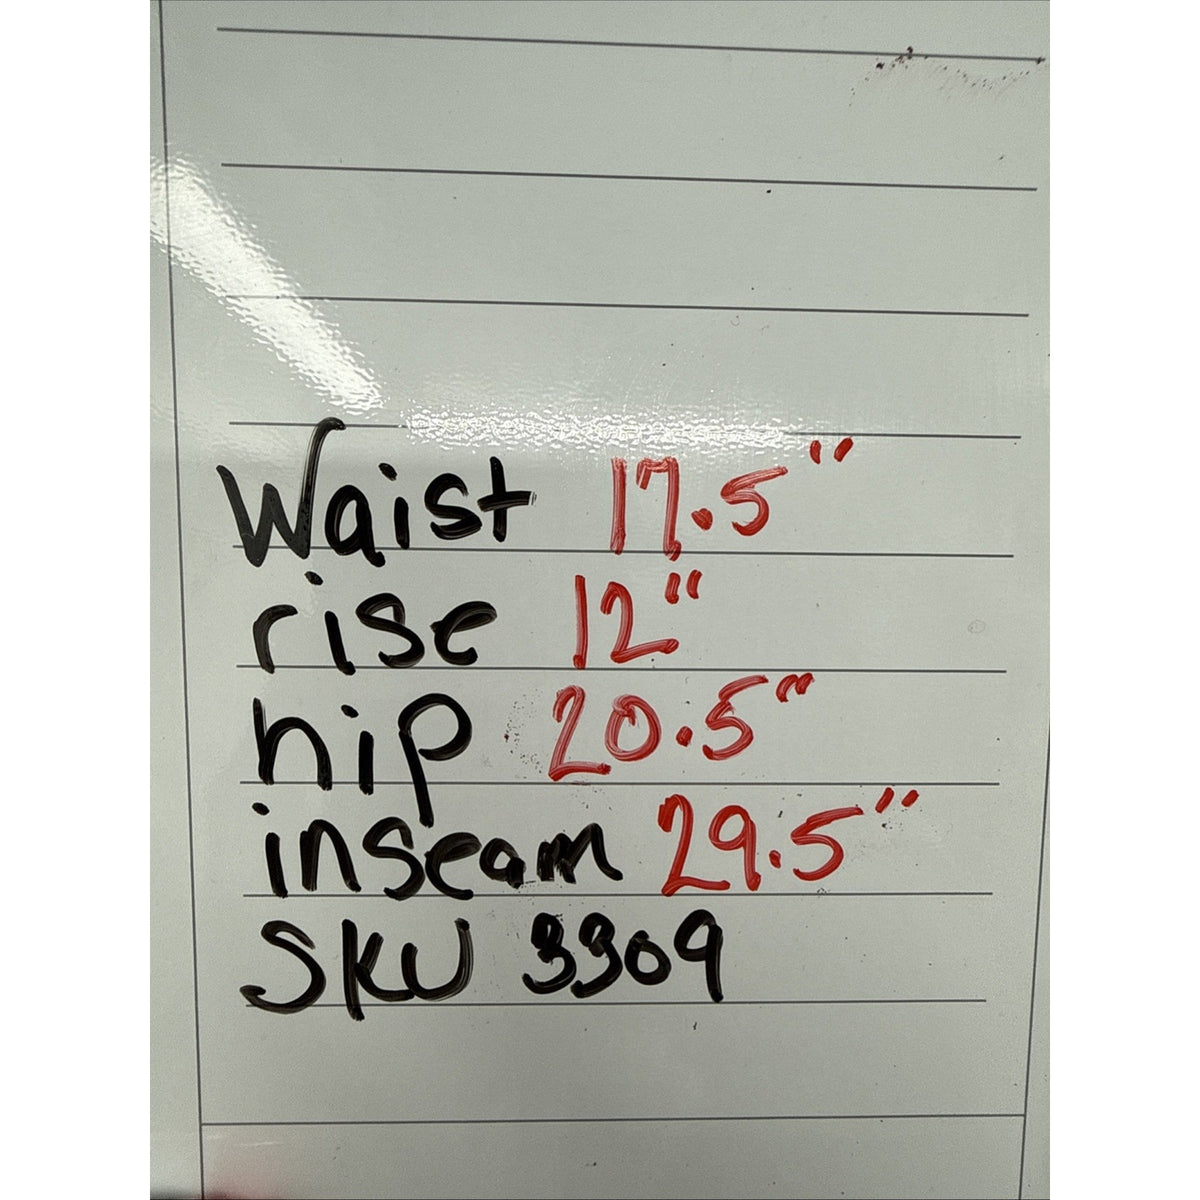 Waist 17.5"
rise 12"
hip 20.5"
inseam 29.5"
SKU 3309